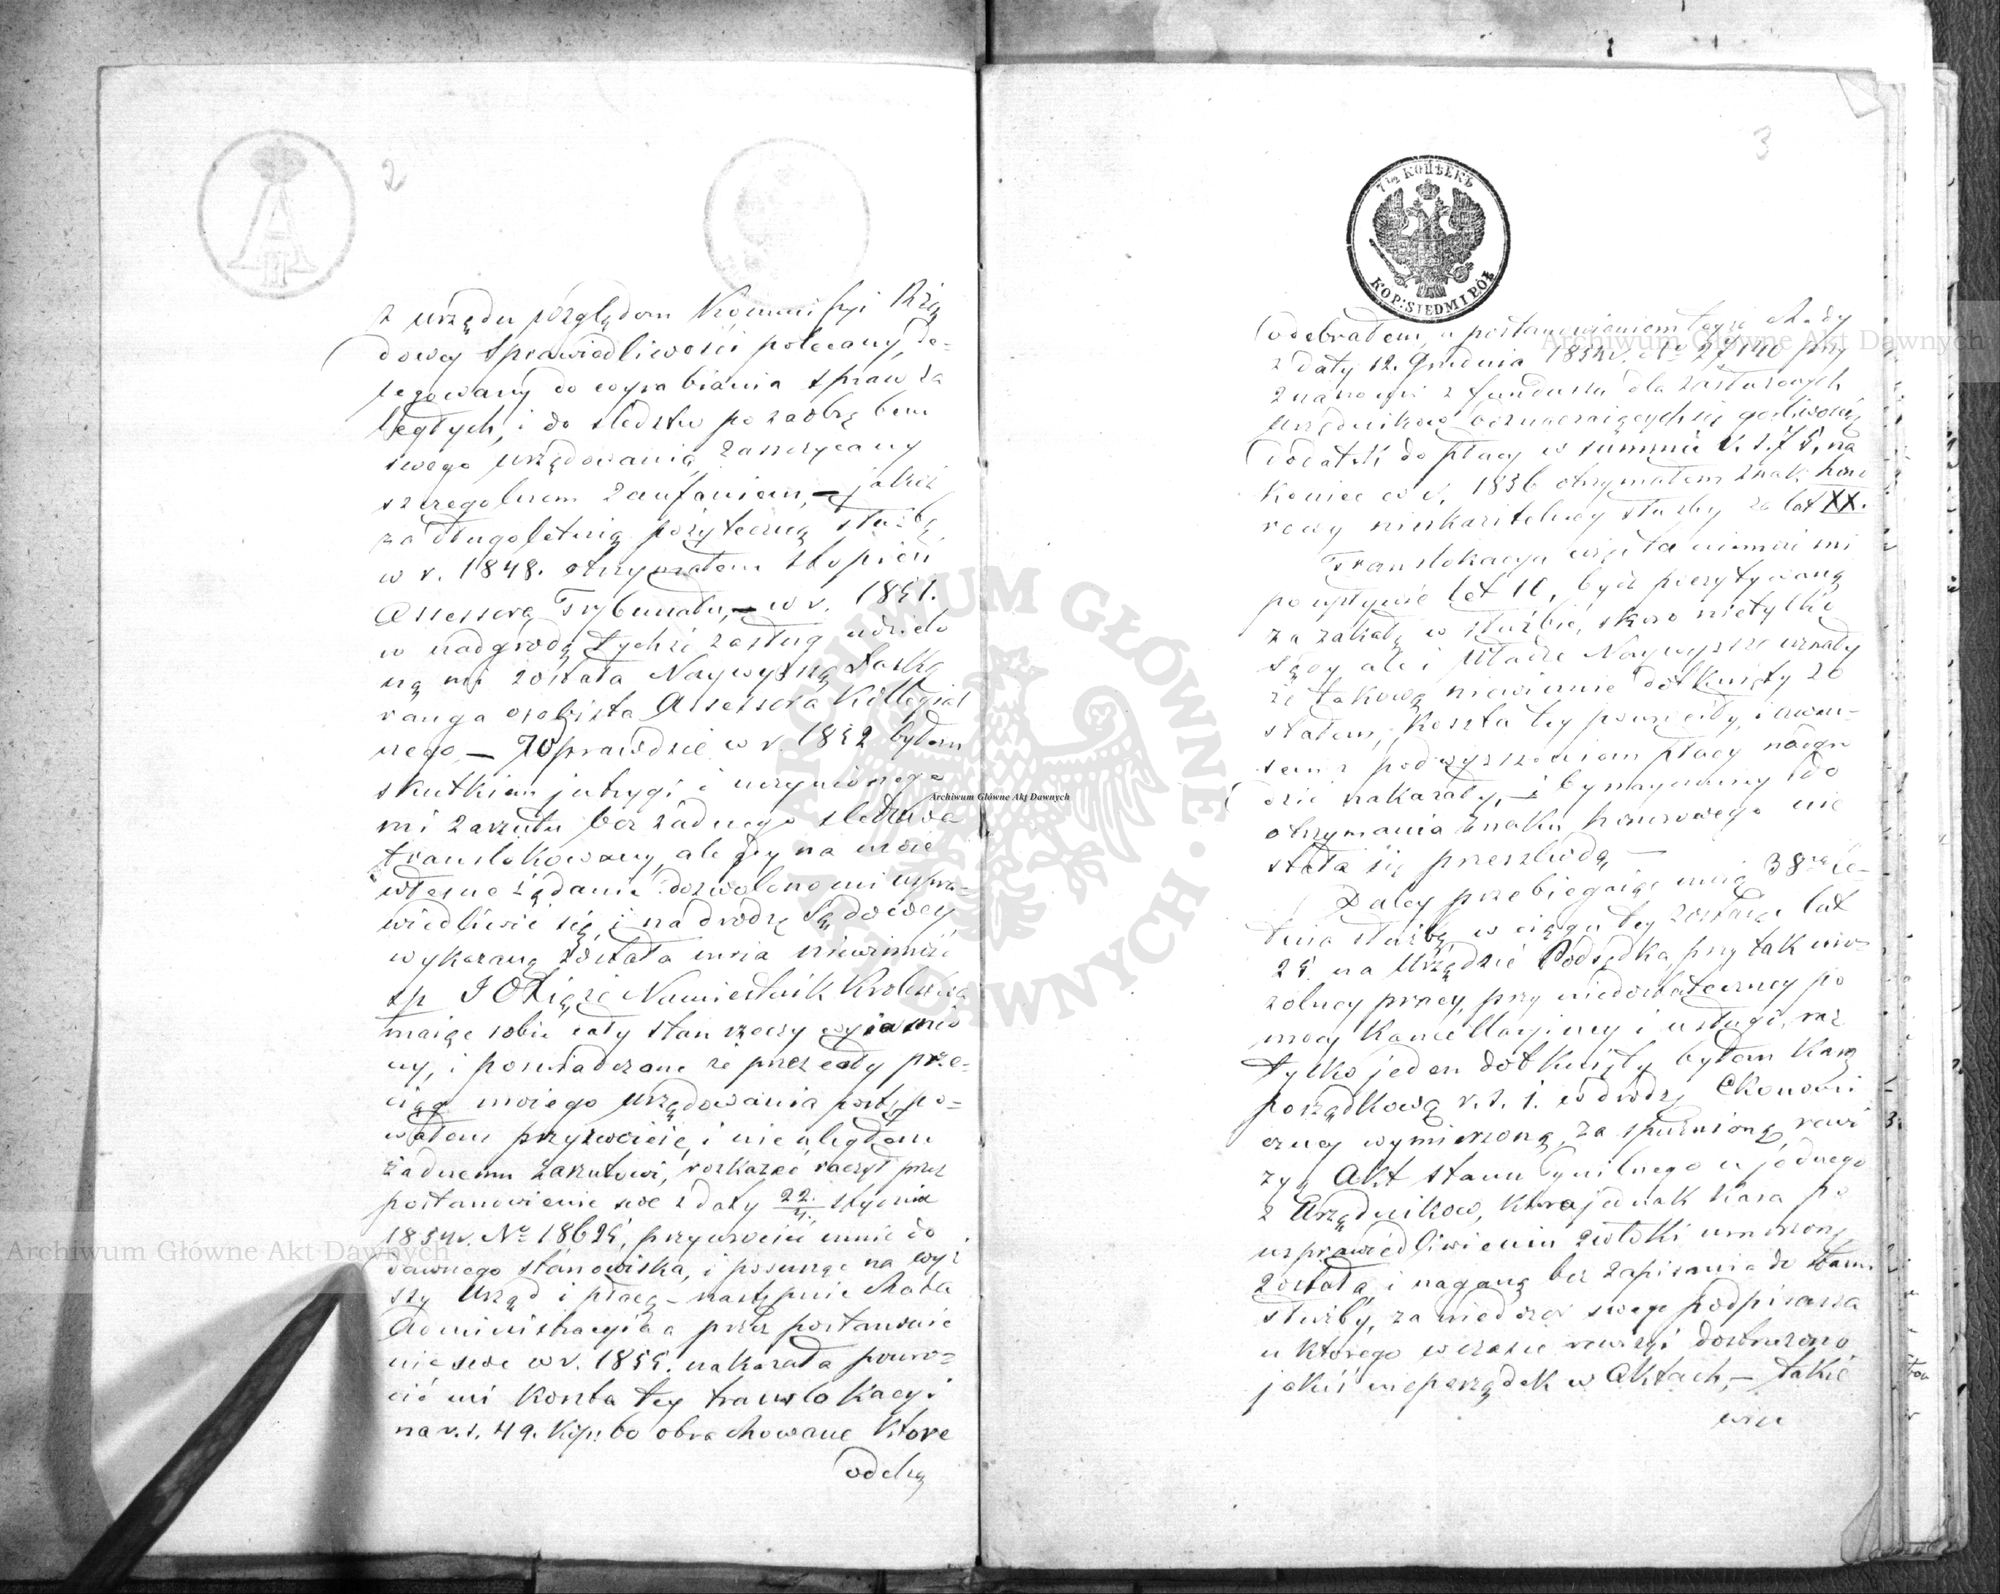 2
z urzędu względem Kommissyi Rzą
dowey Sprawiedliwości polecany, de-
legowany do wyrabiania spraw za
ległych, i do śledztw po za obrębem
swego urzędowania zaszczycany
szczególnem zaufaniem, – jakoż
za długoletnią pożyteczną służbę
w r. 1848. otrzymałem stopień
Assessora Trybunału, – w r. 1851.
w nadgrodę tychże zasług udzielo
ną mi została Naywyższą Łaską
ranga osobista Assessora Kollegial
nego – Wprawdzie w r. 1852 byłem
skutkiem intrygi i uczynionego
mi zarzutu bez żadnego śledztwa
translokowany, ale gdy na moie
własne żądanie dozwolono mi uspra-
wiedliwić się, i na drodze Sądowey
wykazaną została moia niewinność
śp JO Xiąże Namiestnik Królestwa
maiąc sobie cały stan rzeczy wyiaśnio
ny, i poświadczone że przez cały prze-
ciąg moiego urzędowania postępo-
wałem przyzwoicie, i nie uległem
żadnemu zarzutowi, rozkazać raczył przez
postanowienie swe z daty 22. Stycznia
1854 r. No 18625, przywrócić mnie do
dawnego stanowiska, i posunąć na wyż
szy Urząd i płacę – następnie Rada
Administracyina przez postanowie
nie swe w r. 1855. nakazała powró-
cić mi koszta tey translokacyi
na r. s. 49. kop: 60 obrachowane które
odebra
3
7 1/2 КОПѢЕКЪ
KOP: SIEDM I PÓŁ
odebrałem, a postanowieniem teyże Rady
z daty 12. Grudnia 1854 r. No 27140 przy
znanomi z funduszu dla zasłużonych
Urzędników odznaczaiących się gorliwością
dodatek do płacy w summie r. s. 75, na
koniec w r. 1856 otrzymałem znak hono
rowy nieskazitelney służby za lat XX.
Translokacya więc ta niemoże mi
po upływie lat 10, być poczytywaną
za zakałę w służbie, skoro nietylko
Sądy ale i Władze Naywyższe uznały
że takową niewinnie dotknięty zo
stałem, koszta tey powróciły, i awan-
sem z podwyższeniem płacy nadgro
dzić nakazały, – i bynaymniey do
otrzymania znaku honorowego nie
stała się przeszkodą –
Daley przebiegaiąc moią 38o le-
tnią służbę, w ciągu tey zostaiąc lat
25. na Urzędzie Podsędka, przy tak mo-
zolney pracy, przy niedostateczney po
mocy Kancellaryiney i usługi, raz
tylko jeden dotknięty byłem karą
porządkową r. s. 1. w drodze Ekonomi
czney wymierzoną, za spóźnioną rewi
zyą Akt stanu Cywilnego u jednego
z Urzędników, która jednak kara po
usprawiedliwieniu zwłoki umorzoną
została, i naganą bez zapisania do stanu
służby, za niedozór swego podpisarza
u którego w czasie rewizyi dostrzeżono
jakiś nieporządek w Aktach, – takie
wiec
Archiwum Główne Akt Dawnych
Archiwum Główne Akt Dawnych
Archiwum Główne Akt Dawnych
ARCHIWUM GŁÓWNE AKT DAWNYCH